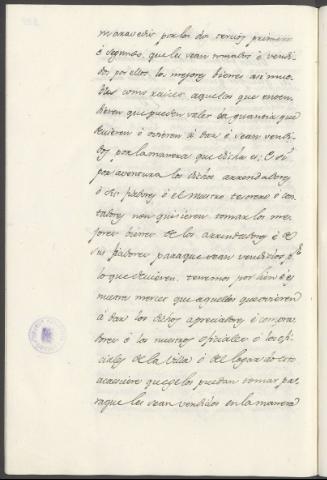 maravedis por los dos tercios primero
é segundo, que les sean tomados é vendi-
dos por ellos los mejores bienes asi mue-
bles como raices, aquellos que enten-
dieren que pueden valer la quantia que
devieren ó ovieren á dar é sean vendi-
dos por la manera que dicha es; E si
por aventura los dichos arrendadores
ó sus fiadores ó el nuestro tesorero ó con-
tadores non quisieren tomar los me-
jores bienes de los arrendadores é de
sus fiadores para que sean vendidos por
lo que devieren. tenemos por bien é es
nuestra merced que aquellos que ovieren
á dar los dichos apreciadores é compra-
dores ó los nuestros oficiales ó los ofi-
ciales de la Villa ó de logar do esto
acaesciere que gelos puedan tomar pa-
ra que les sean vendidos en la manera